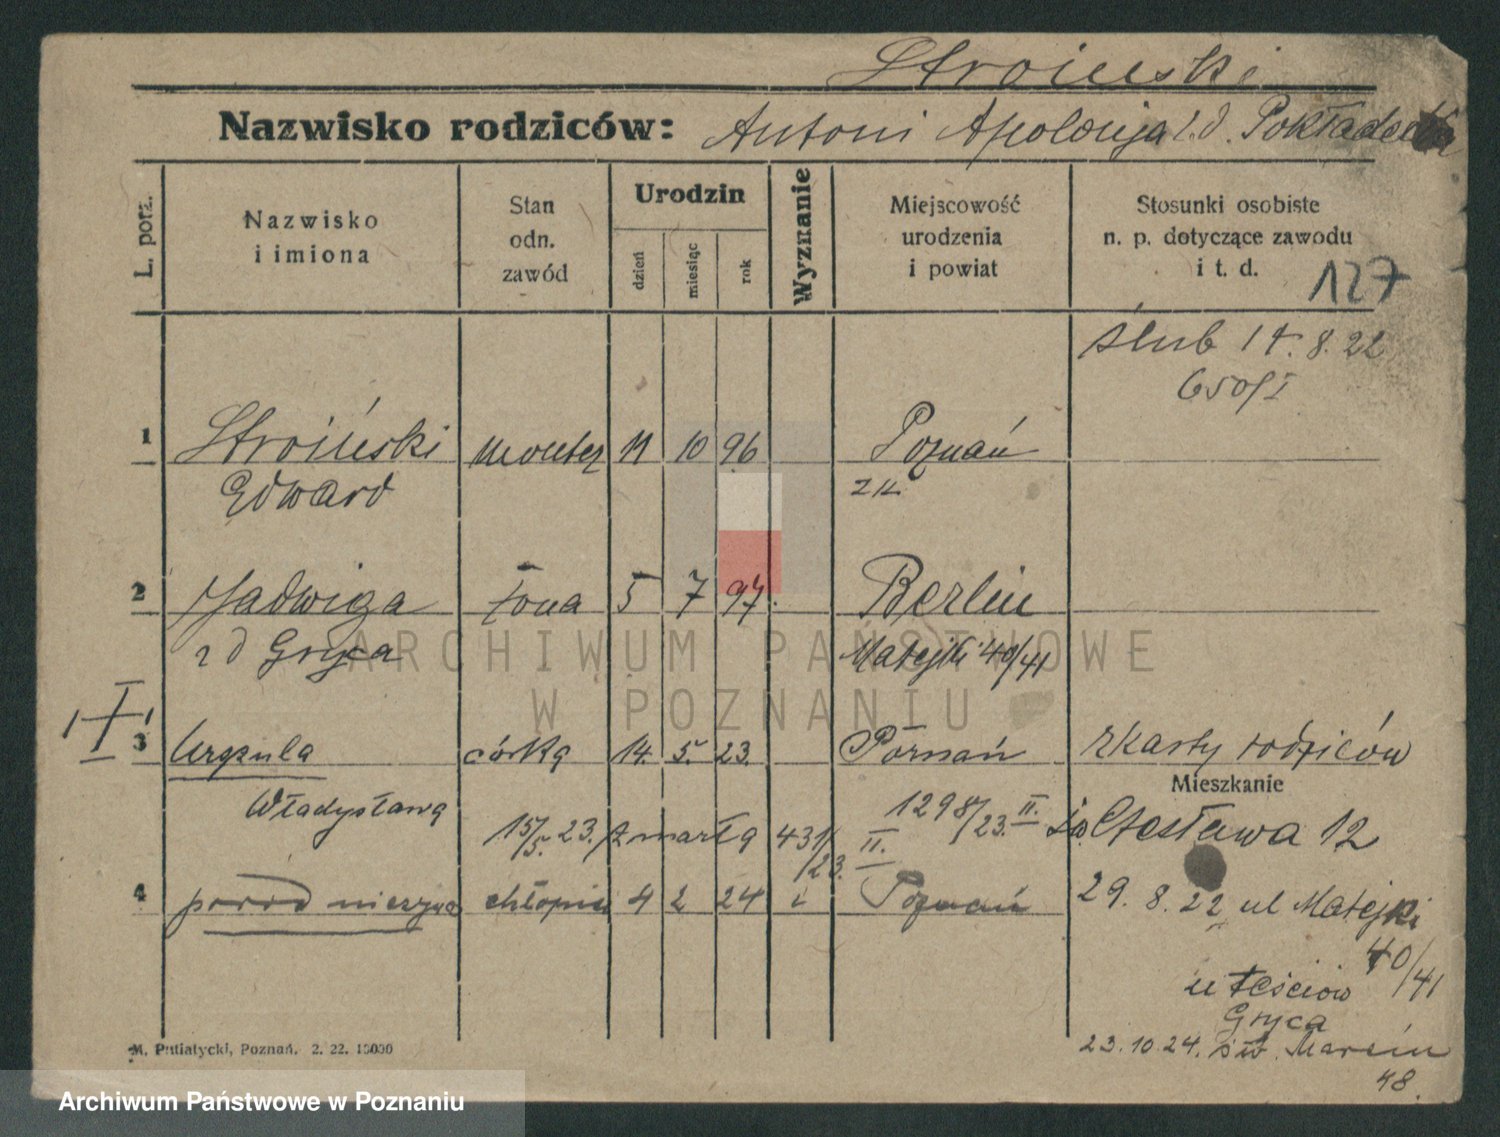 Stroiński
Nazwisko rodziców: Antoni Apolonja z.d. Pokładecka
L. porz.
Nazwisko
i imiona
Stan
odn.
zawód
Urodzin
dzień
miesiąc
rok
Wyznanie
Miejscowość
urodzenia
i powiat
Stosunki osobiste
n. p. dotyczące zawodu
i t. d.
127
ślub 17.8.22
650/I
1 Stroiński monter 11 10 96 Poznań
Edward
2 Jadwiga żona 5 7 97. Berlin
z d Gryca Matejki 40/41
ARCHIWUM PAŃSTWOWE
W POZNANIU
3 Urszula córka 14. 5. 23. Poznań z karty rodziców
Mieszkanie
Władysława
15/5. 23. zmarła 431/23. II.
1298/23. II.
Czesława 12
4 poród nieżyw chłopiec 4 2 24 Poznań
29. 8. 22 ul Matejki
40/41
u teściów
Gryca
23.10.24. św. Marcin
48.
M. Putiatycki, Poznań. 2. 22. 10000
Archiwum Państwowe w Poznaniu